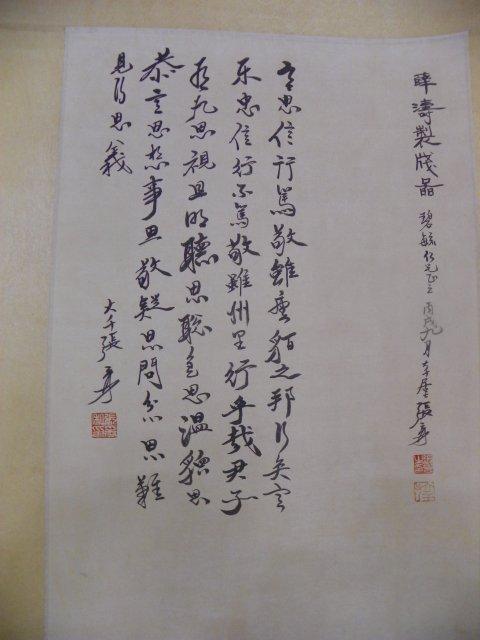 薛濤製牋圖 碧毓仁兄正之 丙戌九月 大千張爰
言忠信行篤敬雖蠻貊之邦行矣言
不忠信行不篤敬雖州里行乎哉君子
有九思視思明聽思聰色思溫貌思
恭言思忠事思敬疑思問忿思難
見得思義
大千張爰